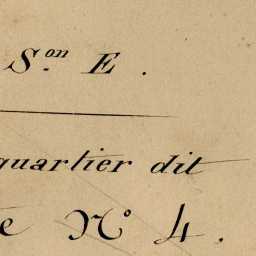 S.on E.
quartier dit
e N.o 4.